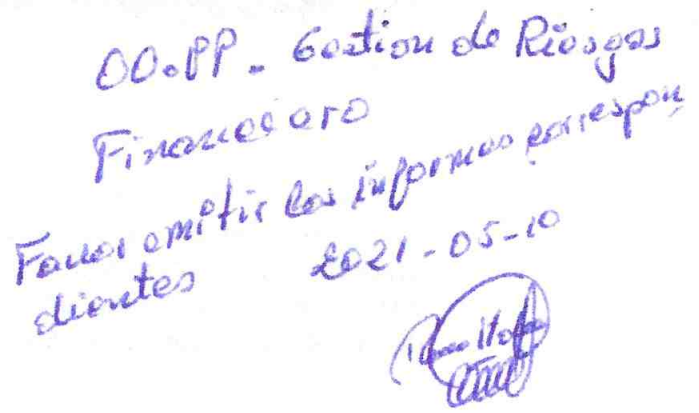 OO.PP - Gestion de Riesgos
Financiero
Favor emitir los informes correspon
dientes 2021-05-10